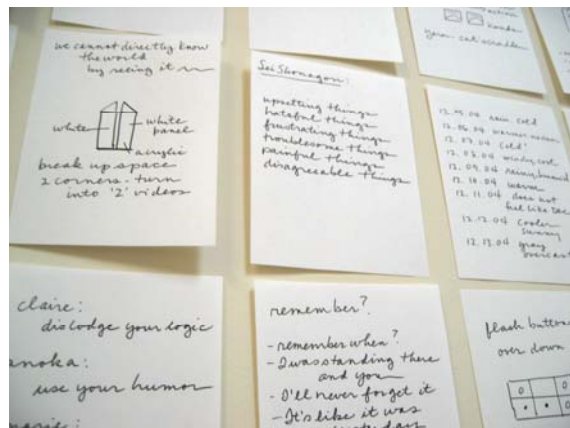 we cannot directly know
the world
by seeing it
white
white
panel
acrylic
break up space
2 corners - turn
into '2' videos
Sei Shonagon:
upsetting things
hateful things
frustrating things
troublesome things
painful things
disagreeable things
12.06.04 warmer
12.07.04 cold
12.08.04 windy, cool
12.09.04 rainy, humid
12.10.04 warm
12.11.04 does not
feel like
12.12.04 cooler
sunny
12.13.04 gray
overcast
claire:
dislodge your logic
anoka:
use your humor
marie:
remember?
- remember when?
- I was standing there
and you
- I'll never forget it
- It's like it was
yesterday
flash button
over down